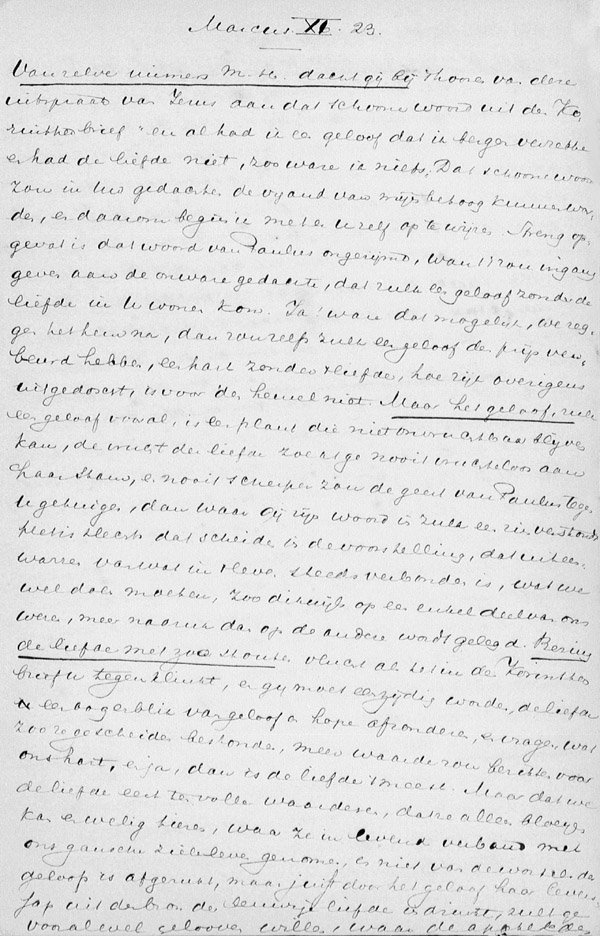 Marcus XI. 23.
Vanzelve immers M. H. dacht gij bij 't hooren van deze
uitspraak van Jezus aan dat schoone woord uit den Ko-
rinthenbrief "en al had ik een geloof dat ik bergen verzette
en had de liefde niet, zoo ware ik niets." Dat schoone woord
zou in uw gedachten de vijand van mijn betoog kunnen wor-
den, en daarom begin ik met er u zelf op te wijzen. Streng op-
gevat is dat woord van Paulus ongerijmd, want 't zou ingang
geven aan de onware gedachte, dat zulk een geloof zonder de
liefde in u wonen kon. Ja! ware dat mogelijk, we zeg-
gen het hem na, dan zou zelfs zulk een geloof den prijs ver-
beurd hebben, een hart zonder liefde, hoe rijk overigens
uitgedoscht, is voor den hemel niet. Maar het geloof, zulk
een geloof vooral, is een plant die niet onvruchtbaar blijven
kan, de vrucht der liefde zoekt ge nooit vruchteloos aan
haar stam, en nooit scherper zou de geest van Paulus tegen
u getuigen, dan waar gij zijn woord in zulk een zin verstondt.
Het is slechts dat scheiden in de voorstelling, dat uiteen-
warren van wat in 't leven steeds verbonden is, wat we
wel doen moeten, zoo dikwijls op een enkel deel van ons
wezen, meer nadruk dan op de andere wordt gelegd.
de liefde met zoo al het in den Korinther
brief u tegenklinkt, en gij moet eenzijdig worden, de liefde
een oogenblik van geloof en hope afzonderen, en vragen wat
zoo ze gescheiden bestonden, meer waarde zou bezitten voor
ons hart, en ja, dan is de liefde 't meest. Maar dat we
de liefde eerst ten volle waardeeren, dat ze alleen bloeyen
kan en welig tieren, waar ze in levend verband met
ons gansche zieleleven genomen, en niet van den wortel des
geloofs is afgerukt, maar juist door het geloof haar levens-
sap uit de bron der eeuwige liefde indrinkt, zult ge
vooral wel gelooven willen, waar de apostel des